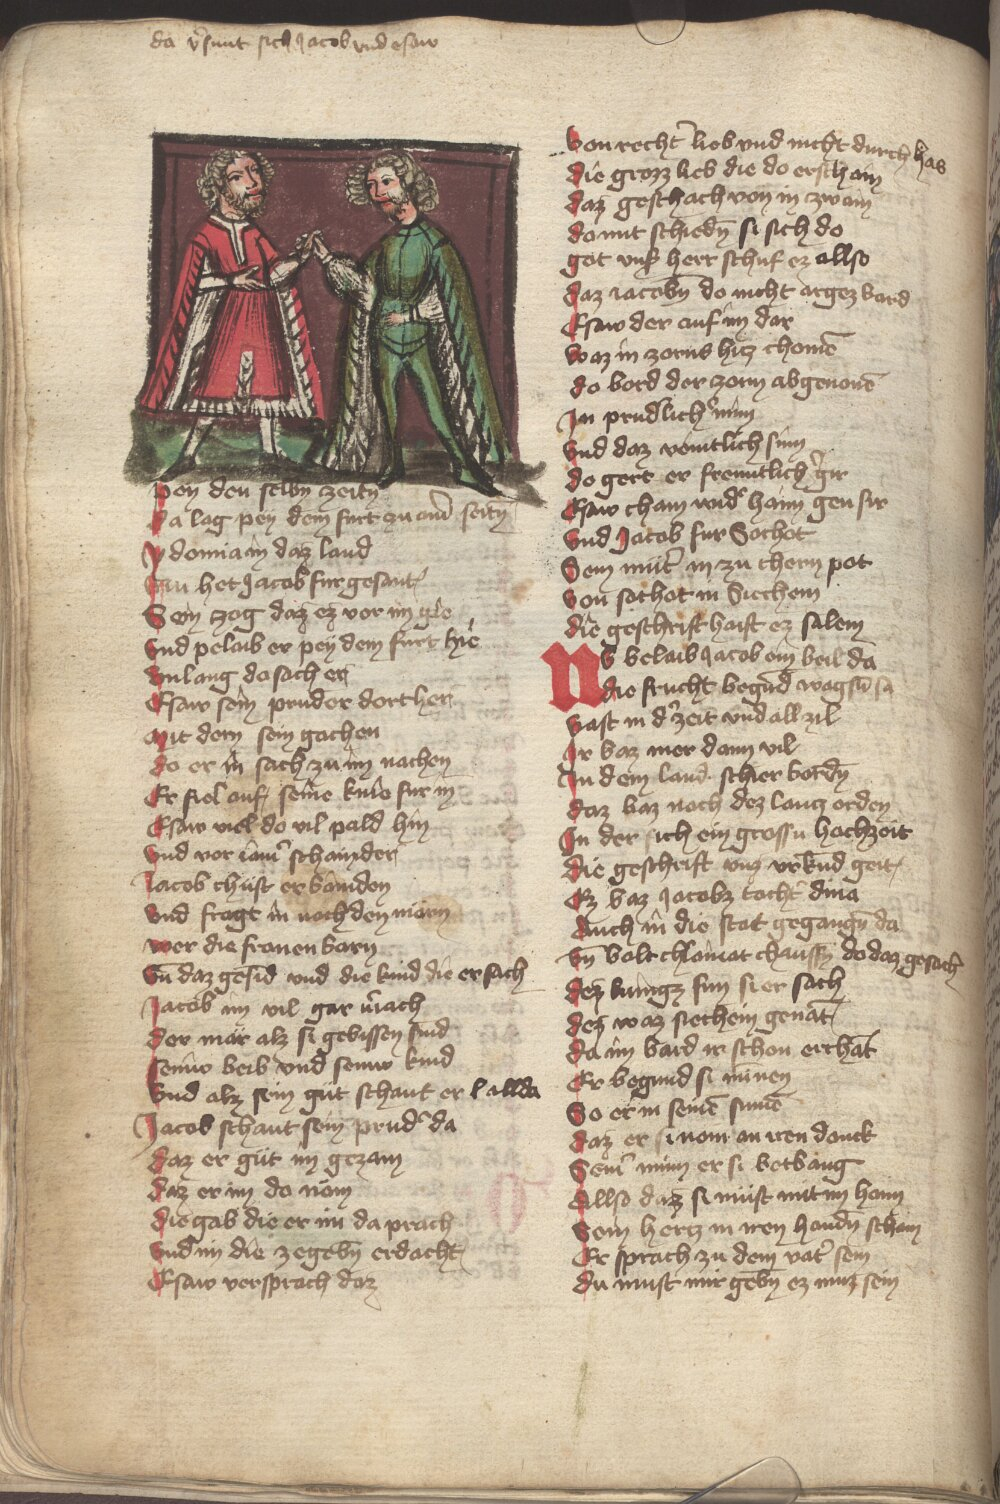 da v̓sunt sich Jacob vnd esaw
Pey den selbn̄ zeitn̄
Da lag pey dem furt zu ainr̄ seitn̄
Ydomiam daz land
Nu het Jacob fur gesant
Sein zog daz ez vor im gie
Vnd pelaib er pey dem furt hie
Vnlang do sach er
Esaw sein pruder dort her
Mit dem sein gachen
do er in sach zu im nachen
Er fiel auf seine knie fur in
Esaw viel do vil pald hin
Vnd vor
Jacob chust er
Vnd fragt in noch den märn
wer die frauen barn
Vn̄ daz gesid vnd die kind die er sach
Jacob im vil gar v̓iach
der mär alz si gebissen sind
seinw beib vnd seinw kind
Vnd alz sein güt schaut er l allda
Jacob schaut sein prudˀ da
daz er güt im gezam
daz er im do nöm
die gab die er im da prach
Vnd im die ze gebn̄ erdacht
Esaw versprach daz
Von rechtˀ lieb vnd nicht durch has
die grozz lieb die do erschain
daz geschach von in zwain
do mit schiedn̄ si sich do
got vnsˀ herr schuf ez allso
daz iacobn̄ do nicht argez bard
Esaw der auf in dar
waz in zorns hicz chomē
do bord der zorn abgenomē
In prudˀlichˀ minn
Vnd daz sinn
do gert er freuntlichˀ gir
Esaw cham widˀ haim gen sir
Vnd Jacob fur Sochot
Sein mutˀ in zu chern pot
Von sochot in Siechem
die geschrift haist ez salem
NV belaib Jacob ein beil da
die frucht begūd wagsn̄ sa
Vast in dˀ zeit vnd all zil
Ir baz mer dann vil
In dem land schier bordn̄
daz baz noch dez lang orden
In der sich ein grossu hochzeit
die geschrift vnz vrkund geit
Ez baz Jacobz tochtˀ dina
Auch in die stat gegangn̄ da
do daz gesach
dez kunigz sun si er sach
dez waz siechein genāt
Da im bard ir schon erchāt
Er begund si minen
So er in seinē sinnē
daz er si nom an iren danck
Seinˀ minn er si betbang
Allso daz si müst mit im haim
Sein hercz in iren handn̄ schain
Er sprach zu dem vatˀ sein
du must mir gebn̄ ez muz sein